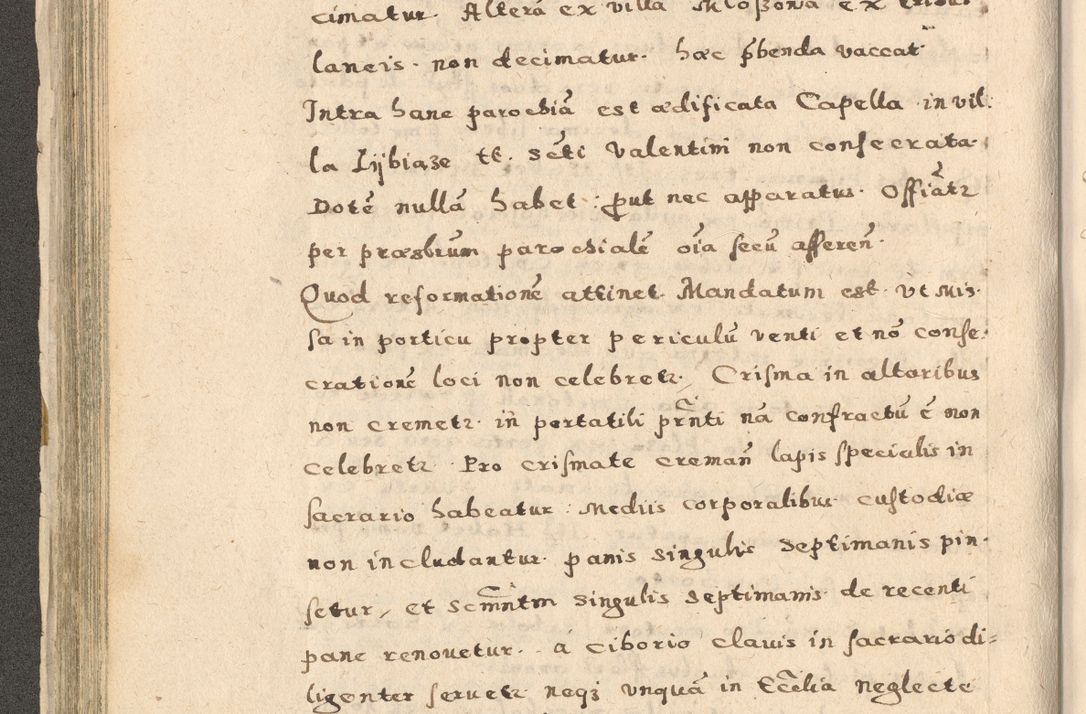 cimatur. Altera ex villa Mloßona ex tribus
laneis. non decimatur. hæc pbenda vaccat
Intra hanc parochiā est ædificata Capella in vil:
la Lijbiaze tt. Scti Valentini non consecrata.
Dotē nullā habet: put nec apparatus. Offiātz
per præsbrūm parochialē oīa secū afferen̄.
Quod reformationē attinet. Mandatum est. vt Mis-
sa in porticu propter periculū venti et nō conse-
crationē loci non celebretz. Crisma in altaribus
non cremetz. in portatili prn̄ti nā confractū ē non
celebretz. Pro crismate creman̄ lapis specialis in
sacrario habeatur: Mediis corporalibus custodiæ
non includantur. panis singulis septimanis pin-
setur, et Scmn̄tm singulis septimanis de recenti
pane renouetur. á ciborio clauis in sacrario di=
ligenter seruetz neqz vnquā in Eccl̄ia neglecte